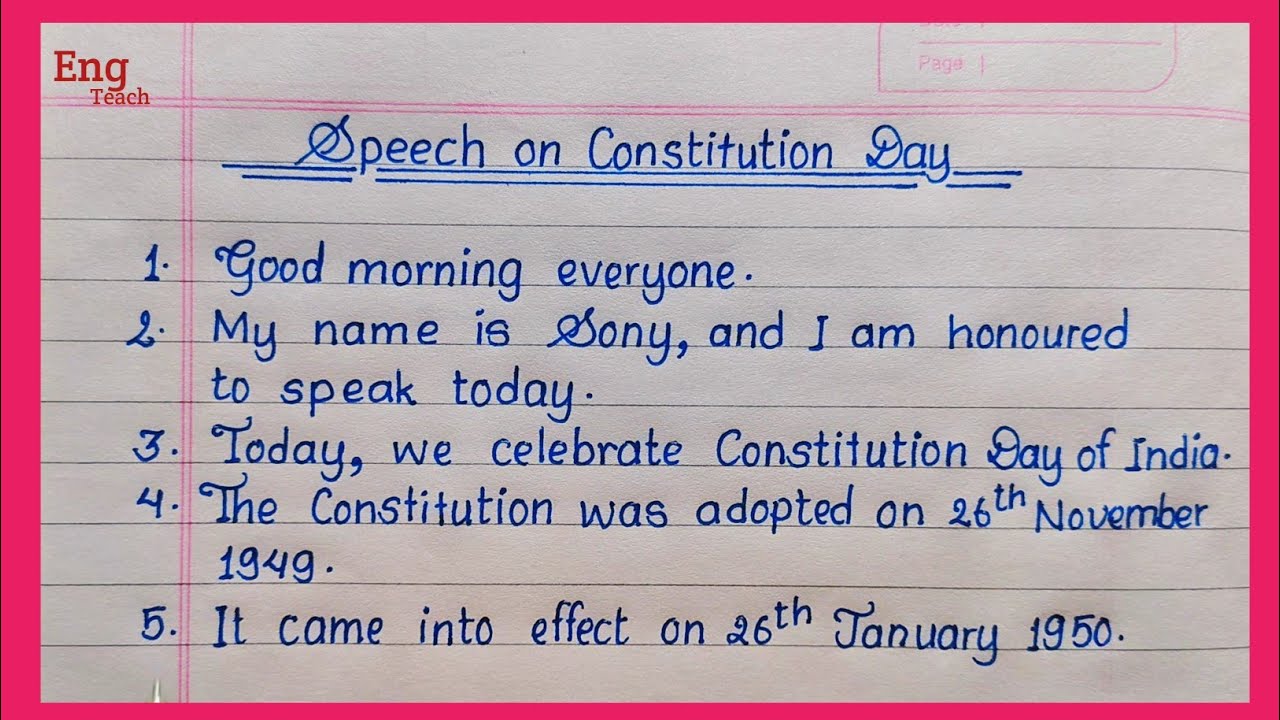 Eng
Teach
Page
Speech on Constitution Day
1. Good morning everyone.
2. My name is Sony, and I am honoured
to speak today.
3. Today, we celebrate Constitution Day of India.
4. The Constitution was adopted on 26th November
1949.
5. It came into effect on 26th January 1950.